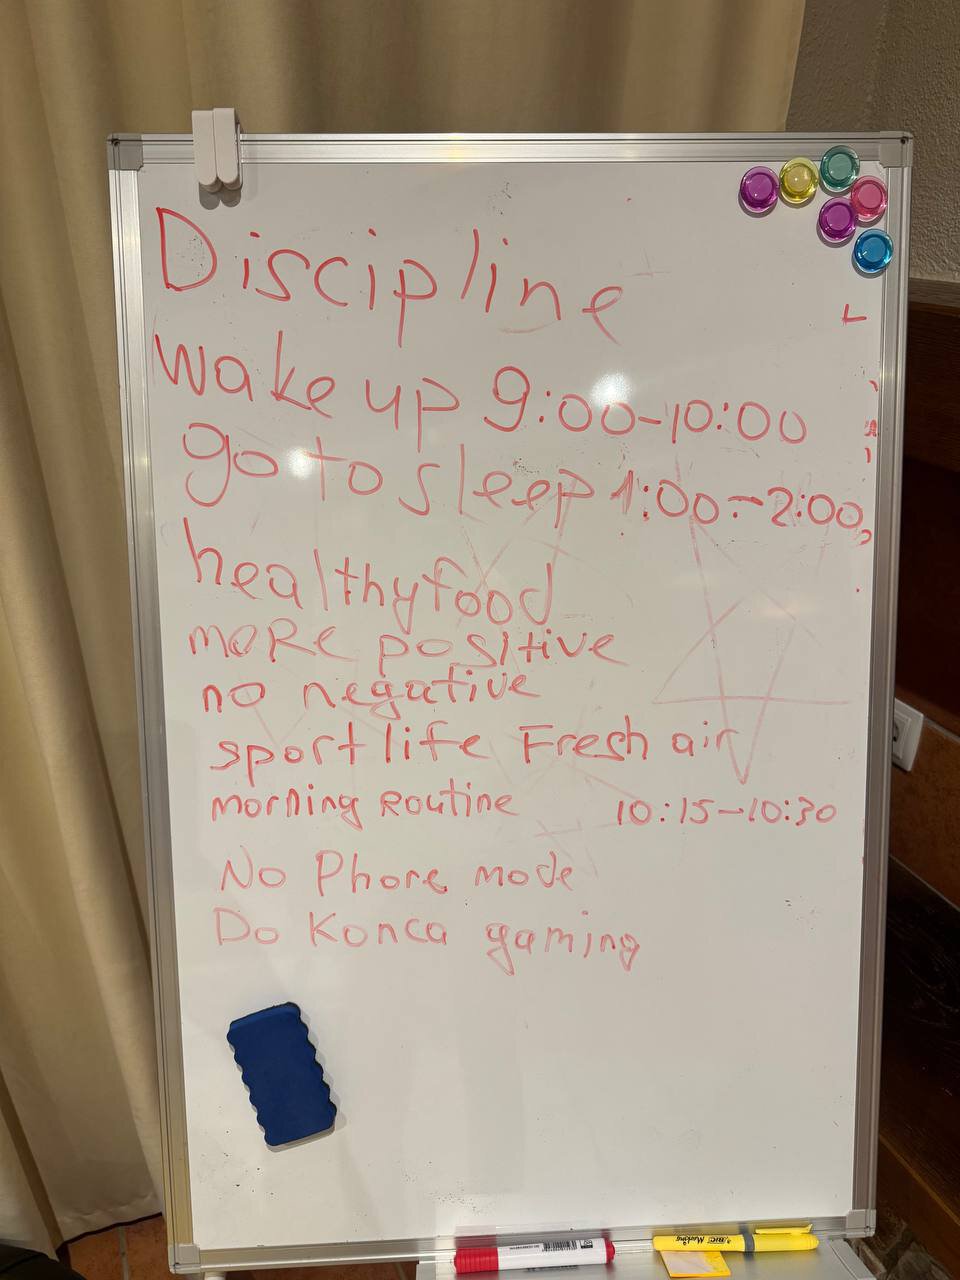 Discipline
wake up 9:00-10:00
go to sleep 1:00-2:00
healthy food
moRe positive
no negative
sport life Fresh air
morning Routine 10:15-10:30
No Phone mode
Do Konca gaming
BIC Marking